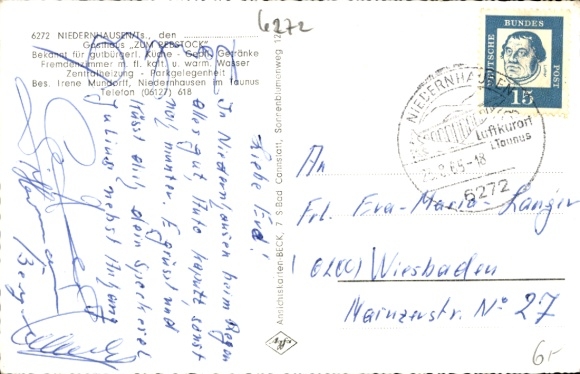 6272
6272 NIEDERNHAUSEN/Ts., den
Gasthaus „ZUM REBSTOCK"
Bekannt für gutbürgerl. Küche - Gepfl. Getränke
Fremdenzimmer m. fl. kalt. u. warm. Wasser
Zentralheizung - Parkgelegenheit
Bes. Irene Mundorff, Niedernhausen im Taunus
Telefon (06127) 618
Liebe Eva!
In Niedernhausen beim Regen
alles gut, Aute kaputt, sonst
noch munter. Es grüsst und
küsst dich, dein
Julius nebst Anhang
Ansichtskarten-BECK, 7 S-Bad Cannstatt, Sonnenblumenweg
DEUTSCHE
BUNDES
POST
15
NIEDERNHAUSEN
Luftkurort
i. Taunus
6272
An
Frl. Eva-Maria Langer
(6200) Wiesbaden
Mainzerstr. No 27
Agfa
6,-